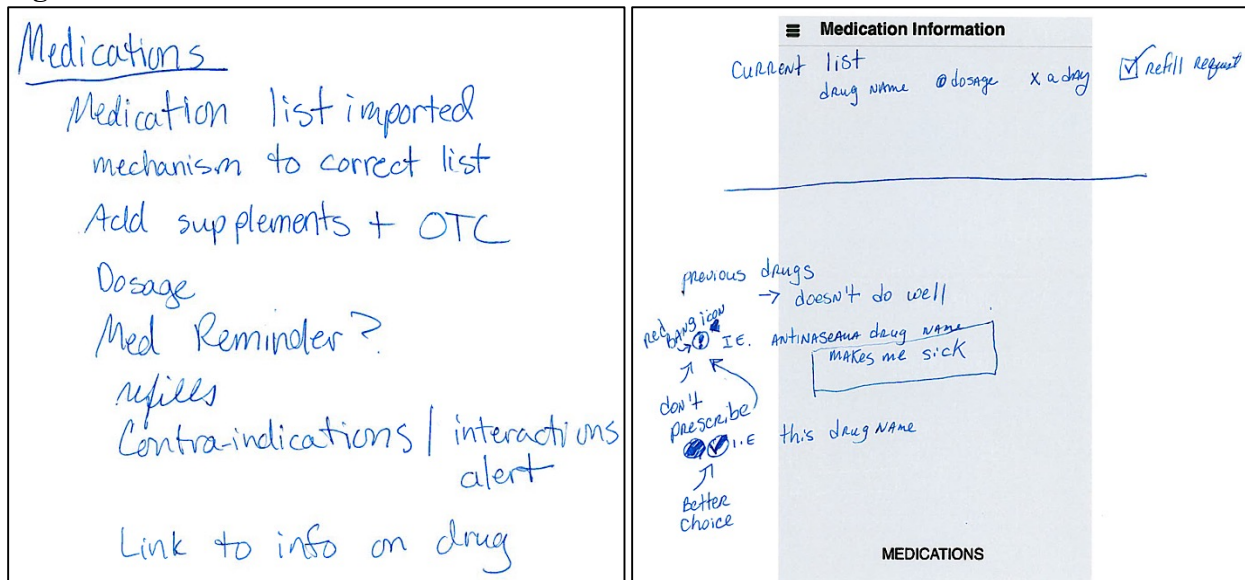 Medications
Medication list imported
mechanism to correct list
Add supplements + OTC
Dosage
Med Reminder?
refills
Contra-indications / interactions
alert
Link to info on drug
Medication Information
CURRENT list
drug NAME dosage x a day refill request
previous drugs
→ doesn't do well
red BANG icon
! I.E. ANTINASEAUA drug NAME
MAKES me sick
don't
prescribe
I.E this drug NAME
Better
choice
MEDICATIONS